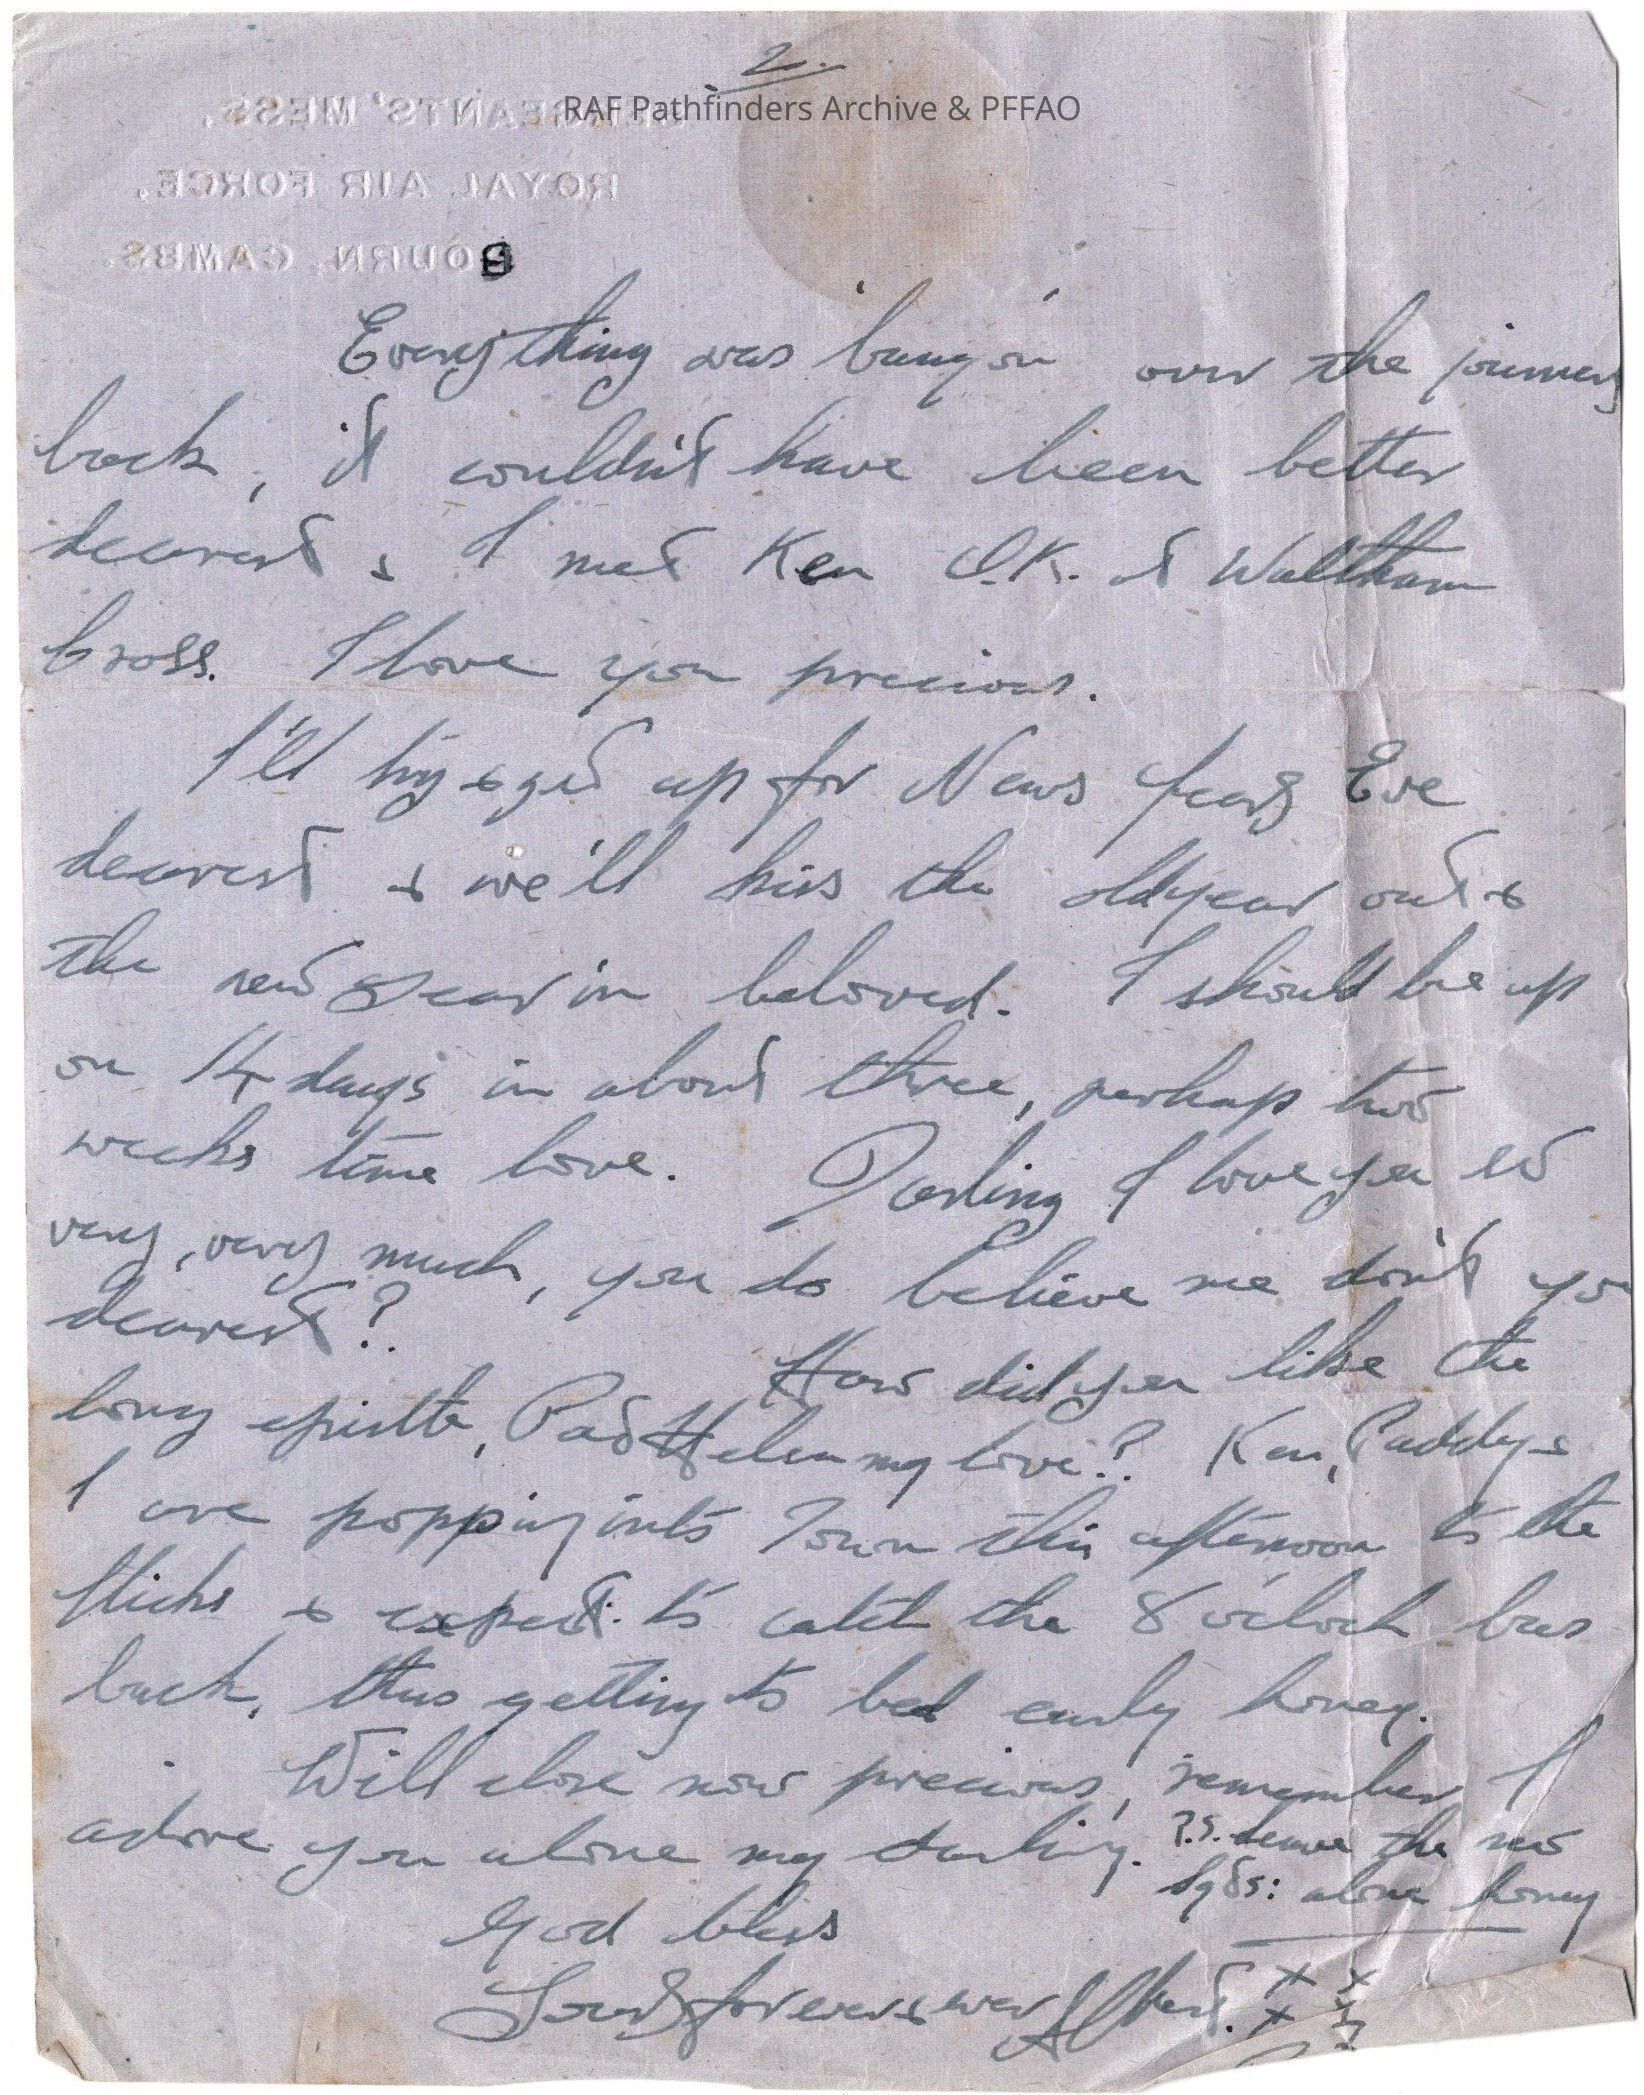 2.
RAF Pathfinders Archive & PFFAO
SERGEANTS' MESS.
ROYAL AIR FORCE,
BOURN. CAMBS.
Everything was 'bung on' over the journey
back, it couldn't have been better
dearest & I met Ken O.K. at Waltham
Cross. I love you precious.
I'll try & get up for News Years Eve
dearest & we'll kiss the old year out &
the new year in beloved. I should be up
on 14 days in about three, perhap two
weeks time love. Darling I love you so
very, very much, you do believe me don't you
dearest?
How did you like the
long epistle, Pad Helen my love? Ken, Paddy &
I are popping into Town this afternoon to the
flicks & expect to catch the 8 o'clock bus
back, thus getting to bed early honey.
Will close now precious, remember I
adore you alone my darling. P.S. Leave the new
Sgts: alone honey
God bless
Yours for ever & ever Albert. x x
x x